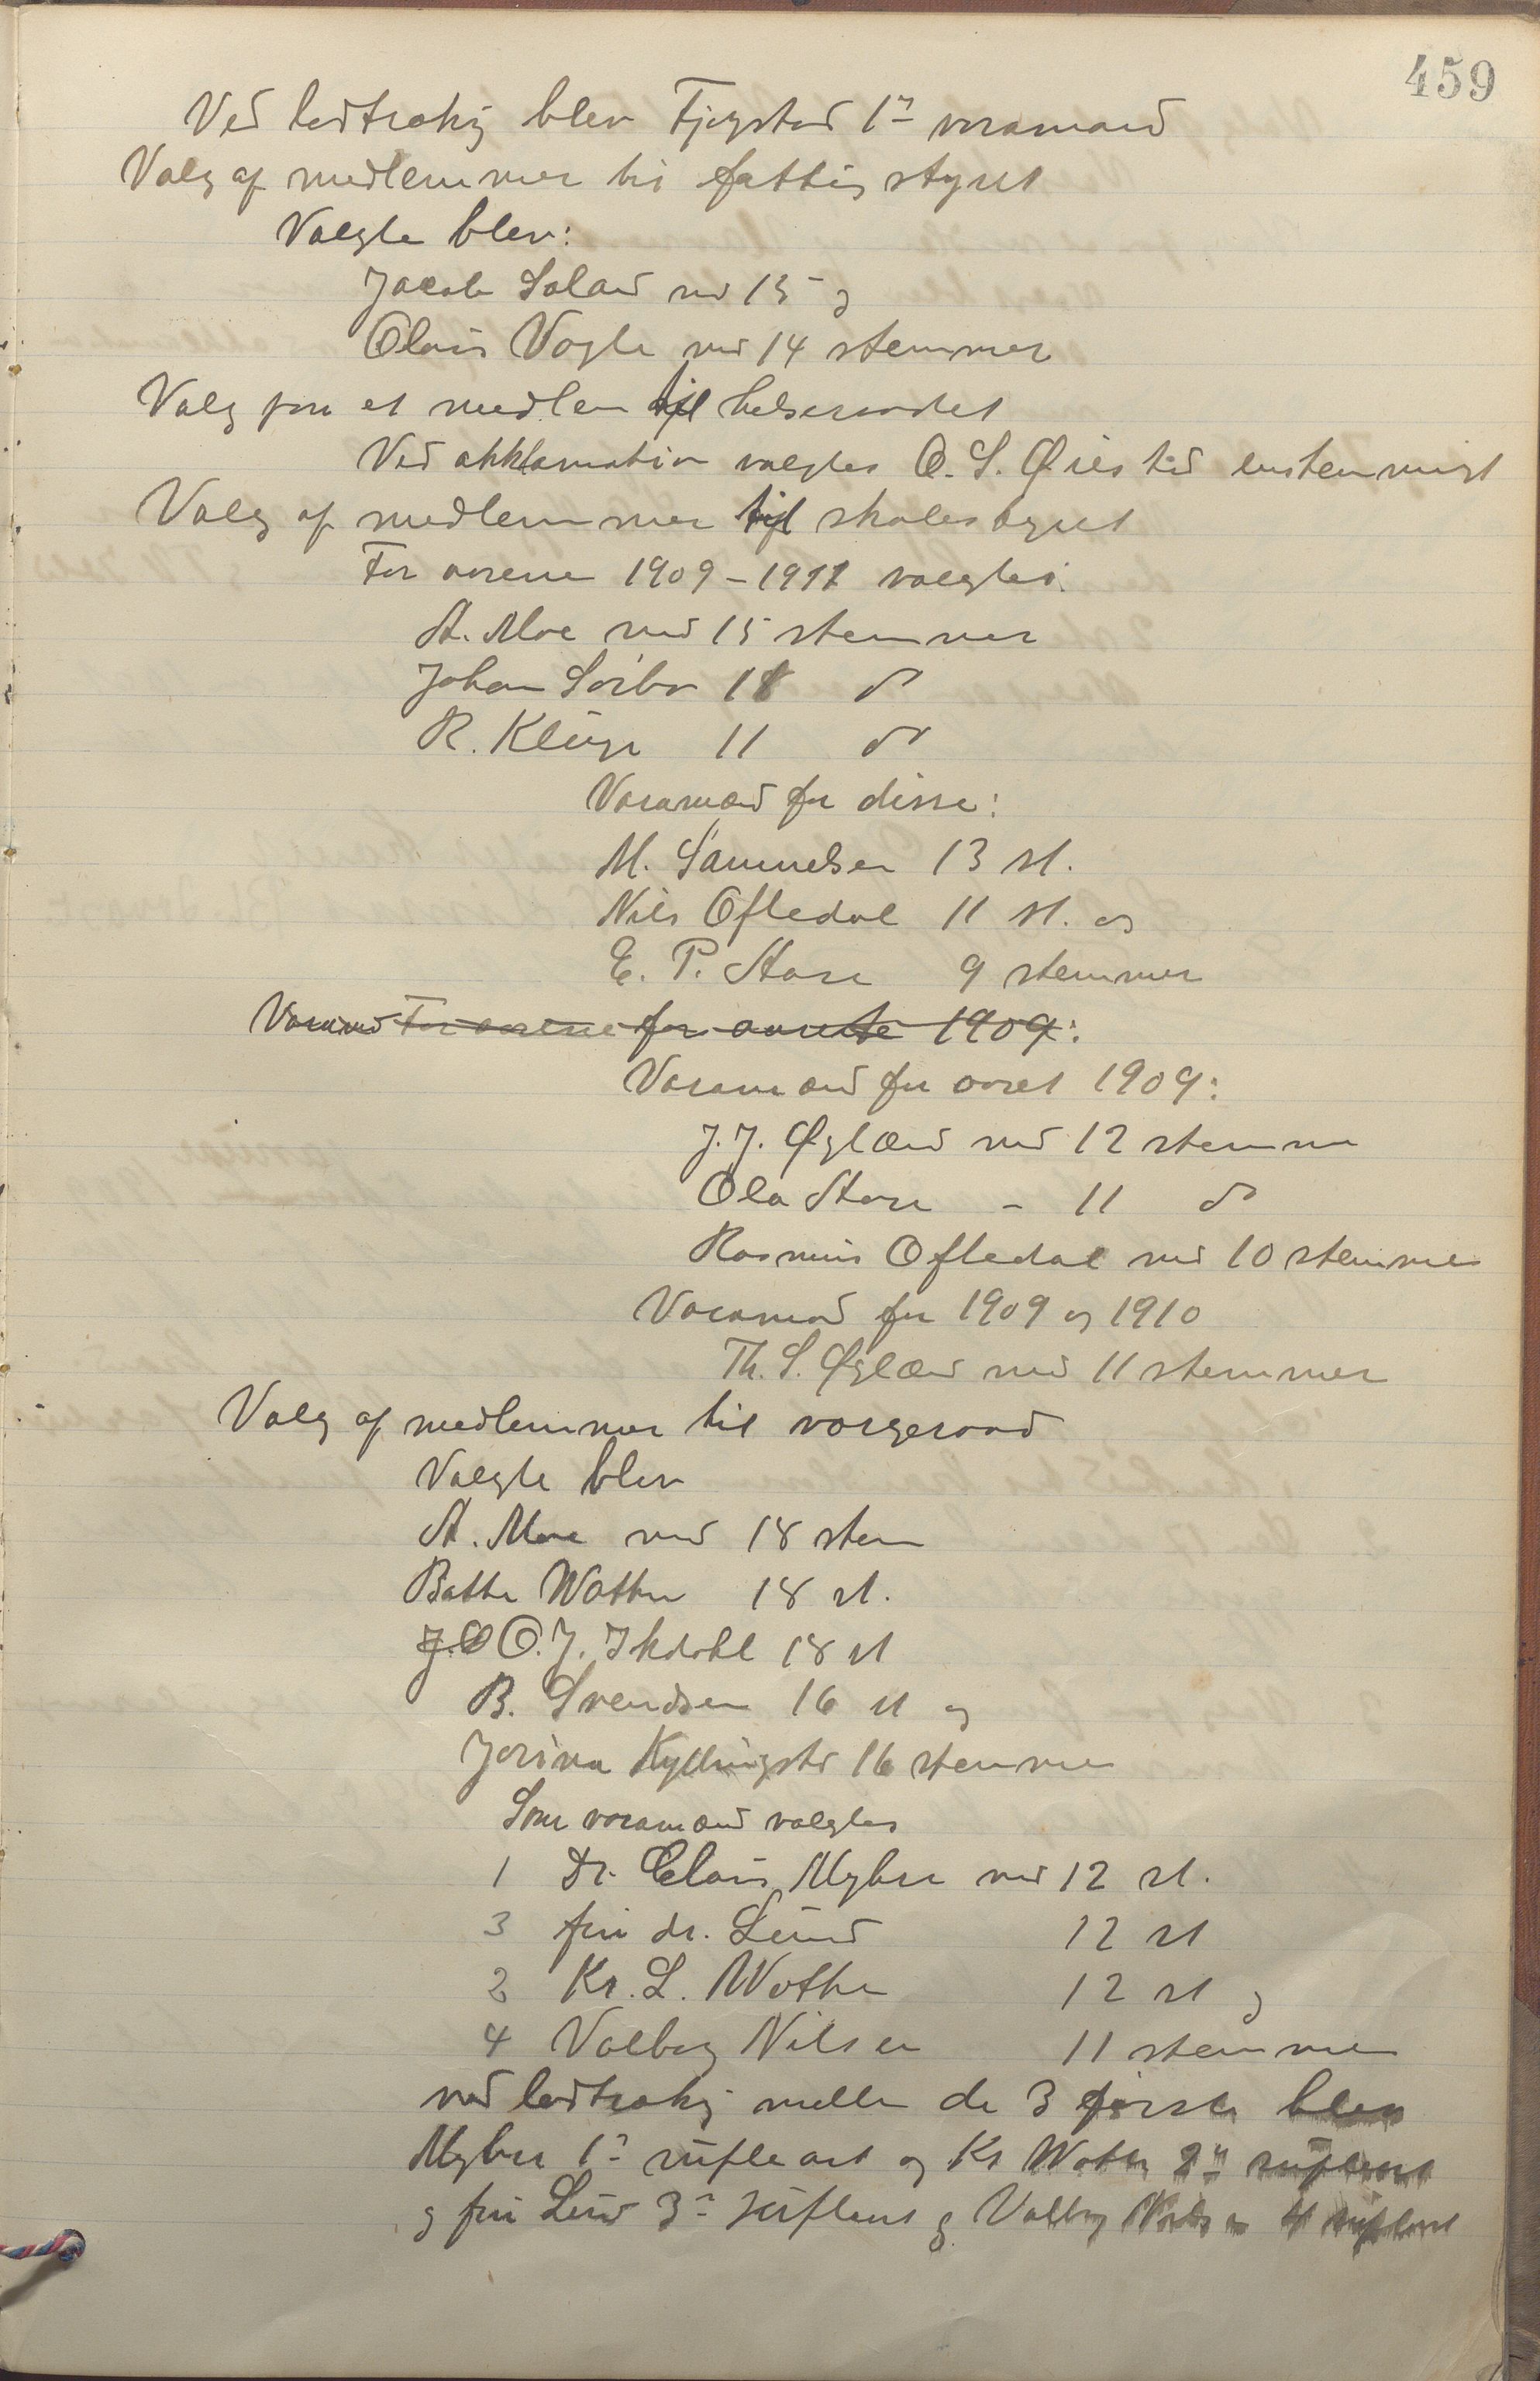 459
Ved lodtrækng blev Fjogstad 1ste varamand
Valg af medlemmer til fattigstyret
Valgte blev:
Jacob Soland med 15 og
Olaus Vagle med 14 stemmer
Valg paa et medlem til helseraadet
Ved akklamation valgtes O. S. Øiestad enstemmigt
Valg af medlemmer til skolestyret
For aarene 1909-1911 valgtes:
A. Moe med 15 stemmer
Johan Sørbø 18 do
R. Kluge 11 do
Varamænd for disse:
M. Samuelsen 13 st.
Nils Oftedal 11 st. og
E. P. Hase 9 stemmer
Varamd For aarene for aarene 1909:
Varamænd for aaret 1909:
J. J. Øglænd med 12 stemmer
Ola Hase - 11 do
Rasmus Oftedal med 10 stemmer
Varamænd for 1909 og 1910
Th. S. Øglænd med 11 stemmer
Valg af medlemmer til vergeraad
Valgte blev
A. Moe med 18 stem
Wathne 18 st.
J.O O. J. Ihdahl 18 st
B. Svendsen 16 st og
Jorina Kyllingstd 16 stemmer
Som varamænd valgtes
1 Dr. Claus Myhre med 12 st.
3 fru dr. Lund 12 st
2 Kr. L. Wathne 12 st og
4 Valborg Nilsen 11 stemmer
ved lodtrækng mellem de 3 første blev
Myhre 1ste supleant og Kr Wathne 2den supleant
og fru Lund 3die supleant og Valborg Nilsen 4 supleant